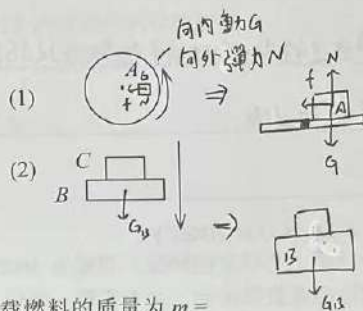 向内重力G
向外弹力N
(1) A G f N ⇒ N f A G
(2) C B G_B ⇒ B G_B
载燃料的质量为 m =